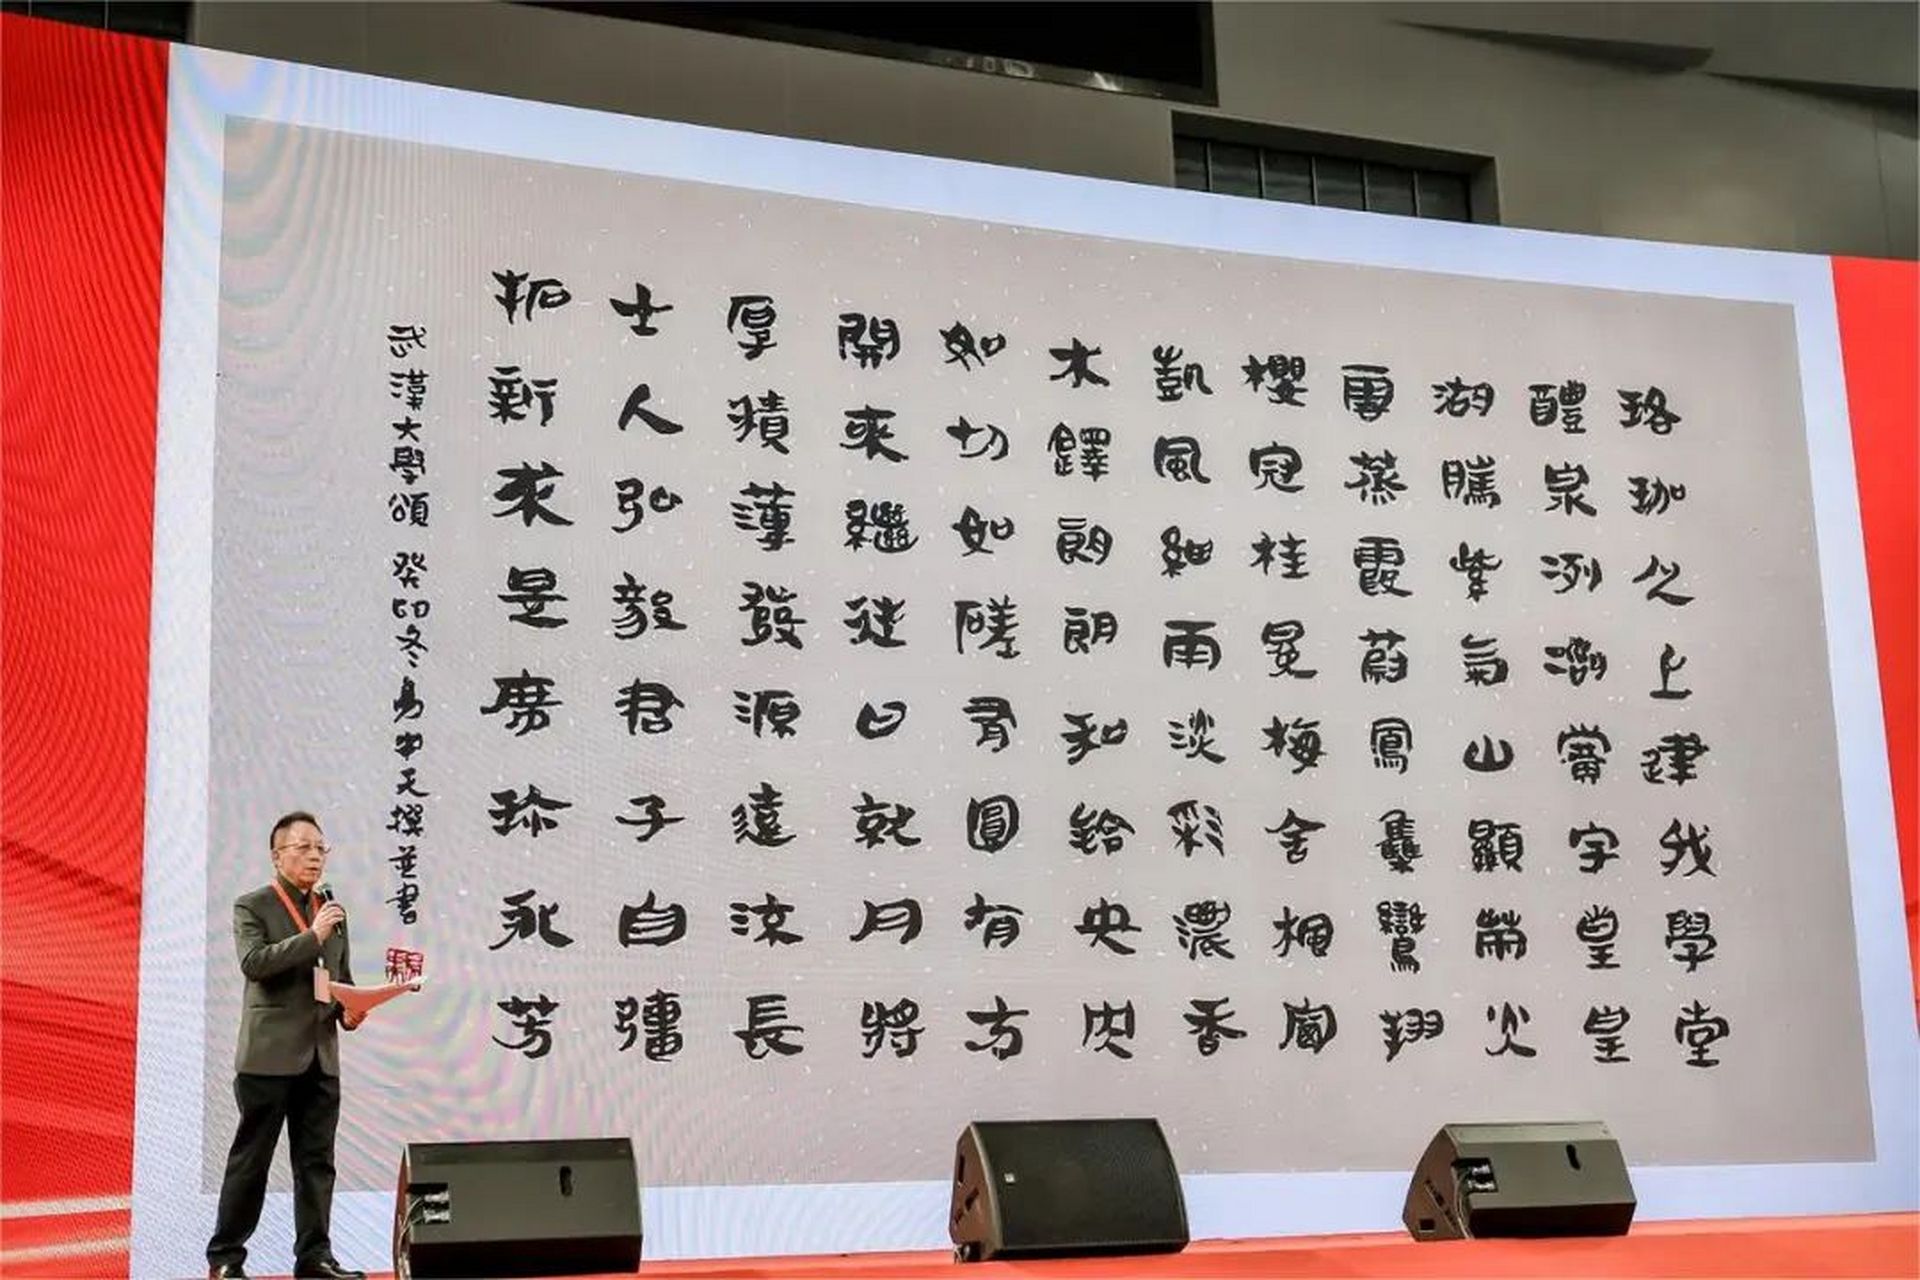 珞珈之上建我學堂
醴泉冽黌宇皇皇
湖騰紫氣山顯榮光
雲蒸霞蔚鳳集鸞翔
櫻冠桂冕梅舍楓窗
凱風細雨淡彩濃香
木鐸朗朗和鈴央央
如切如磋有圓有方
開來繼往日就月將
厚積薄發源遠流長
士人弘毅君子自彊
拓新求是席珍永芳
武漢大學頌 癸卯冬易中天撰並書